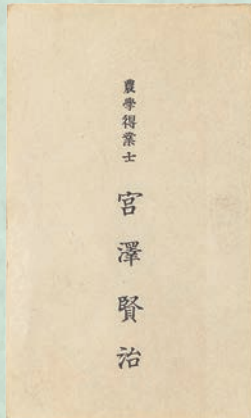 農學得業士
宮澤賢治